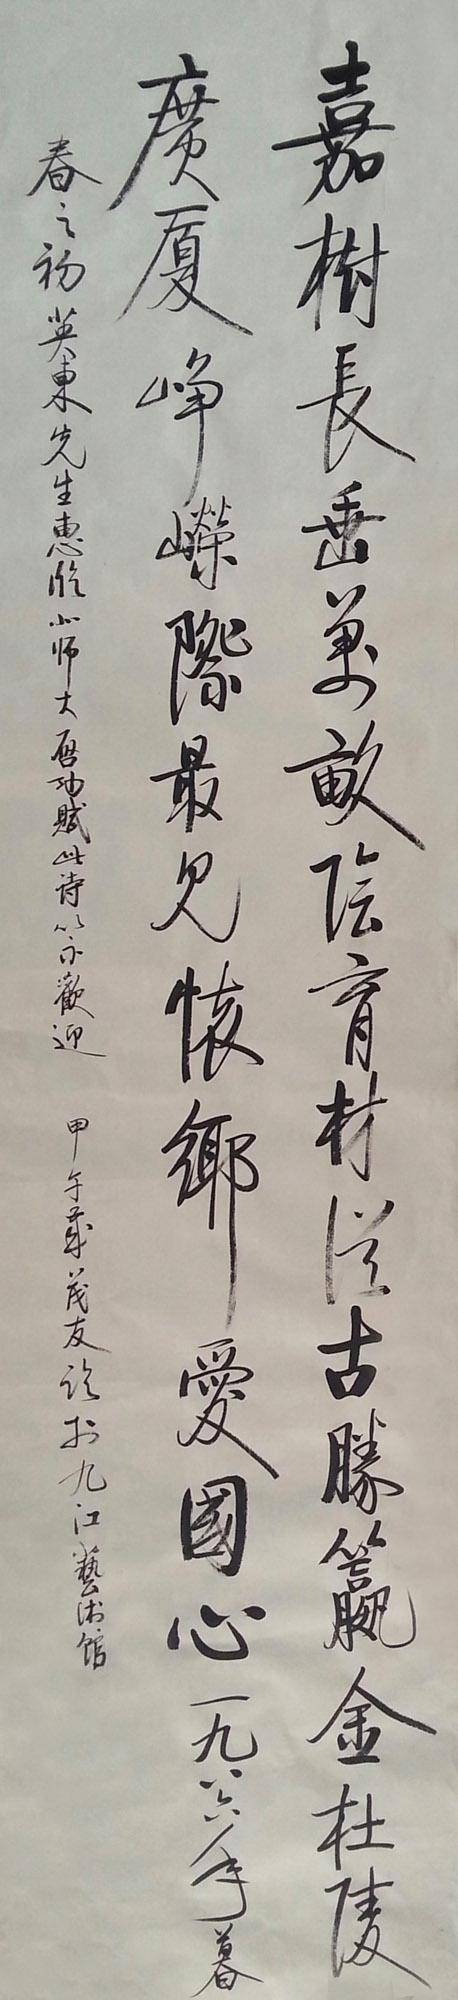 嘉樹長垂萬畝陰育材從古勝籯金杜陵
廣厦峥嶸際最见懷鄉愛國心一九八六年暮
春之初英東先生惠临北师大启功賦此诗以示歡迎 甲午歲茂友临於九江藝術馆